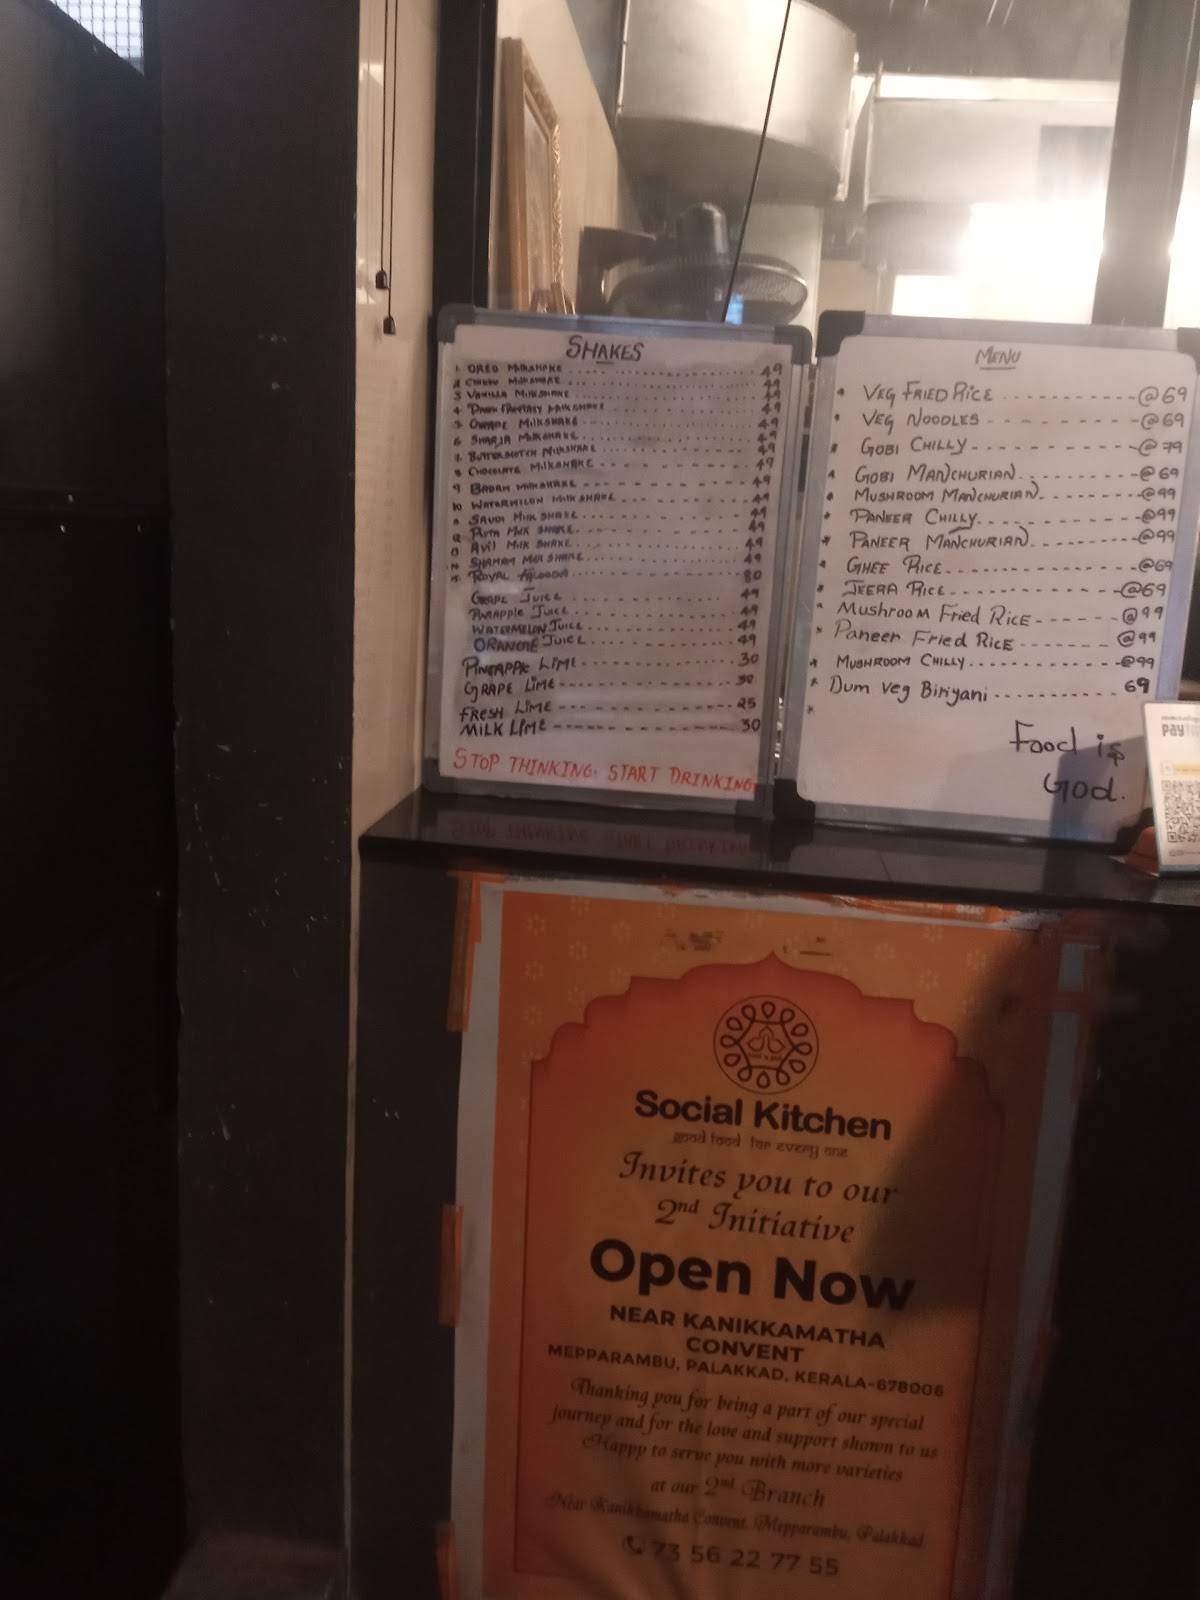 SHAKES
1. OREO MILKSHAKE 49
2 CHIKKU MILKSHAKE 49
3 VANILLA MILKSHAKE 49
4. DARK FANTASY MILKSHAKE 49
MILKSHAKE 49
6 SHARJA MILKSHAKE 49
7. BUTTERSCOTCH MILKSHAKE 49
8 CHOCOLATE MILKSHAKE 49
9 BADAM MILKSHAKE 49
10 WATERMILON MILKSHAKE 49
SAUDI MILK SHAKE 49
PISTA MILK SHAKE 49
13 AVIL MILK SHAKE 49
14 SHAMAM MILK SHAKE 49
15 ROYAL FALOODA 80
GRAPE JUICE 49
PINEAPPLE JUICE 49
WATERMELON JUICE 49
ORANGE JUICE 49
PINEAPPLE LIME 30
GRAPE LIME 30
FRESH LIME 25
MILK LIME 30
STOP THINKING. START DRINKING
MENU
* VEG FRIED RICE @69
* VEG NOODLES @69
* GOBI CHILLY @79
* GOBI MANCHURIAN @69
* MUSHROOM MANCHURIAN @99
* PANEER CHILLY @99
* PANEER MANCHURIAN @99
* GHEE RICE @69
* JEERA RICE @69
* MUSHROOM FRIED RICE @99
* Paneer Fried RICE @99
* MUSHROOM CHILLY @99
* Dum Veg Biriyani 69
*
Food is
God.
Social Kitchen
good food for every one
Invites you to our
2nd Initiative
Open Now
NEAR KANIKKAMATHA
CONVENT
MEPPARAMBU, PALAKKAD, KERALA-678006
Thanking you for being a part of our special
journey and for the love and support shown to us
Happy to serve you with more varieties
at our 2nd Branch
Near Kanikkamatha Convent, Mepparambu, Palakkad.
73 56 22 77 55